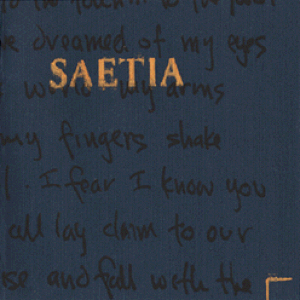 to the
dreamed of my eyes
SAETIA
my arms
my fingers shake
. I fear I know you
all lay claim to our
and fall with the